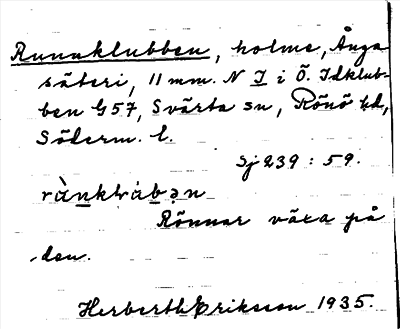 Runnklubben, holme, Ånga
säteri, 11 mm. N I i Ö. Idklub-
ben G57, Svärta sn, Rönö hd,
Söderm. l.
Sj 239 : 59.
Rönnar växa på
den.
Herberth Eriksson 1935.